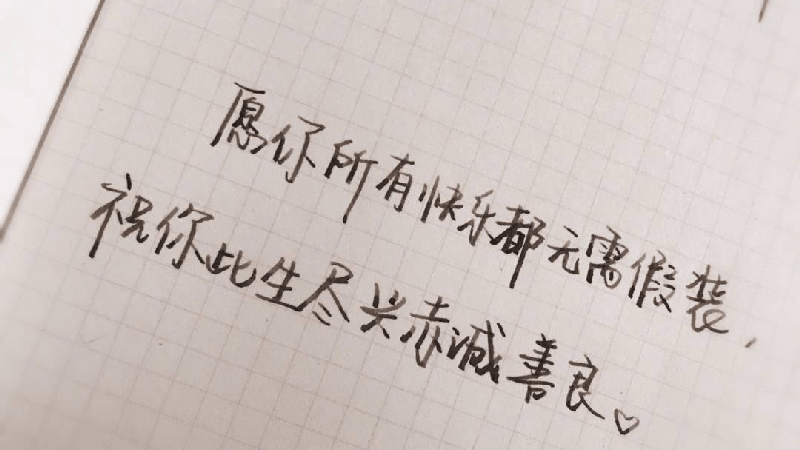 愿你所有快乐都无需假装，
祝你此生尽兴赤诚善良。♡